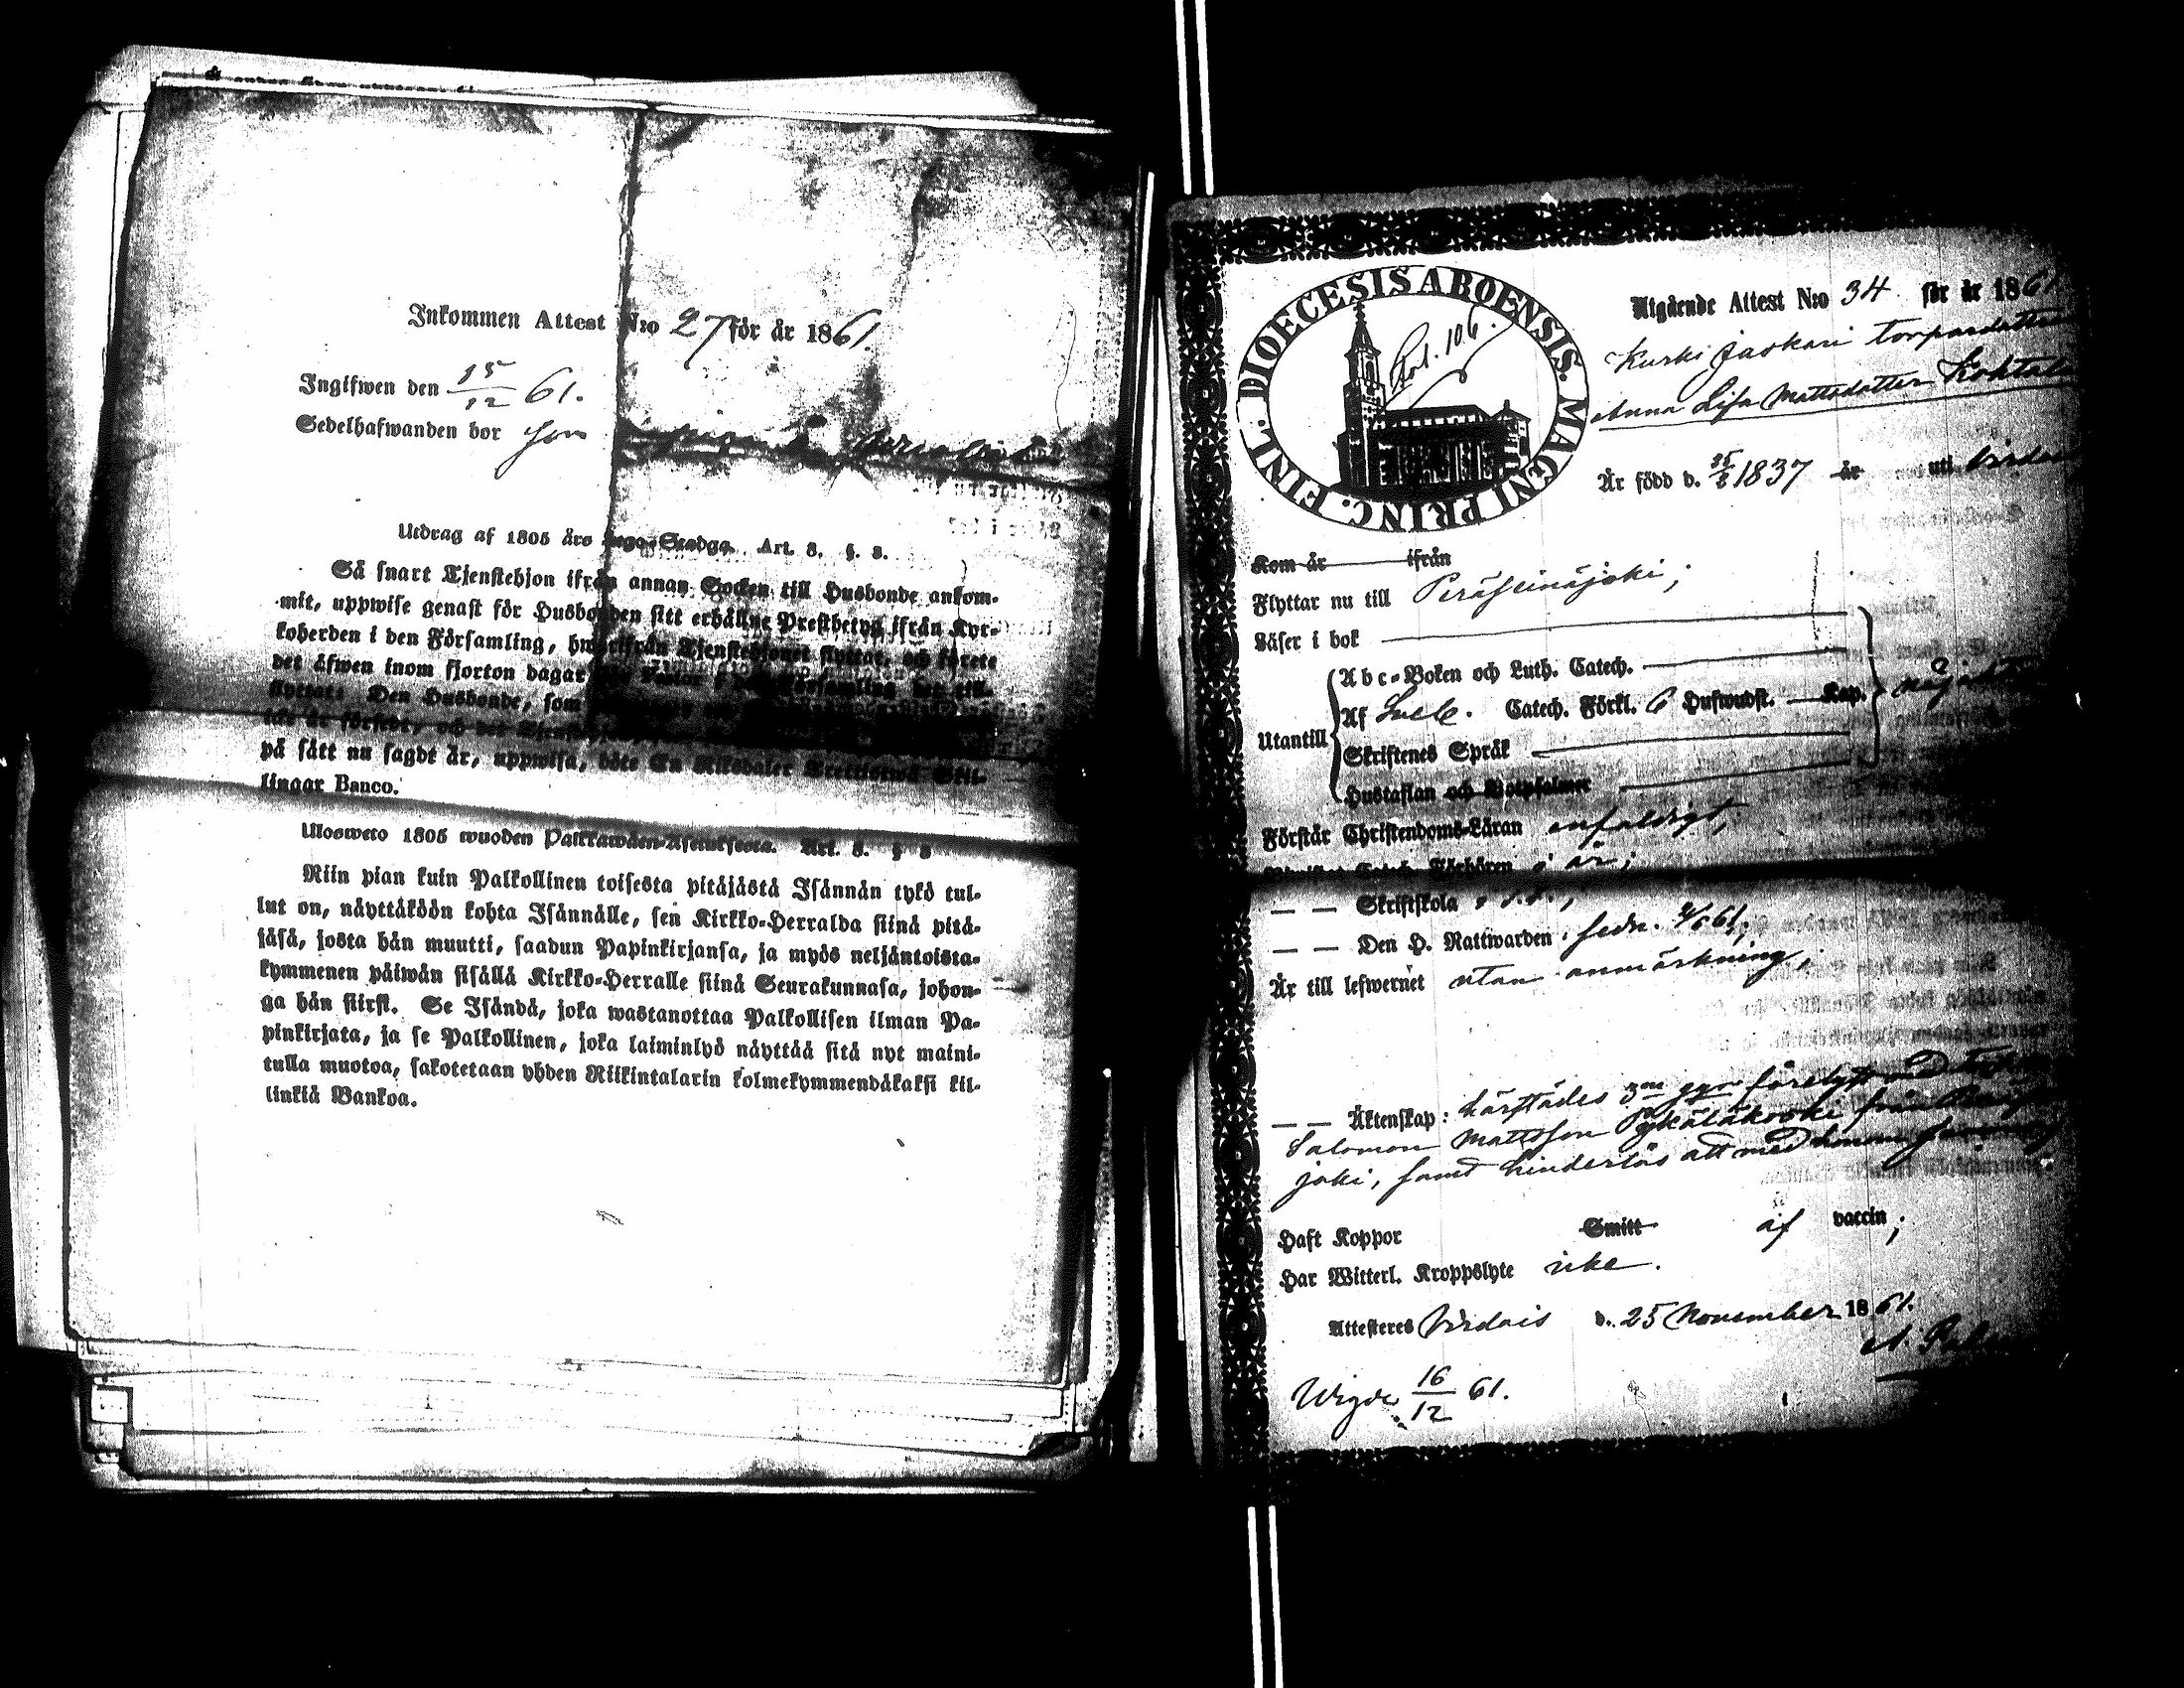 Inkommen Attest N:o 27 för år 1861.
Ingifwen den 15/12 61.
Sedelhafwanden bor som
Utdrag af 1805 års Lego-Stadga. Art. 8. §. 8.
Så snart Tjenstehjon ifrån annan Socken till Husbonde ankom-
mit, uppwise genast för Husbonden sitt erhållne Prestbetyg ifrån Kyr-
koherden i den Församling, hwarifrån Tjenstehjonet flyttat, och förete
det äfwen inom fjorton dagar för Pastor i den Församling det till-
flyttat: Den Husbonde, som
icke är försedt, och det Tjenstehjon,
på sätt nu sagdt är, uppwisa, böte En Riksdaler Trettiotwå Skil-
lingar Banco.
Uloswеto 1805 wuoden Palkkawäen-Asetuksesta. Art. 8. § 8
Niin pian kuin Palkollinen toisesta pitäjästä Isännän tykö tul-
lut on, näyttäköön kohta Isännälle, sen Kirkko-Herralda siinä pitä-
jäsä, josta hän muutti, saadun Papinkirjansa, ja myös neljäntoista-
kymmenen päiwän sisällä Kirkko-Herralle siinä Seurakunnasa, johon-
ga hän siirst. Se Isändä, joka wastanottaa Palkollisen ilman Pa-
pinkirjata, ja se Palkollinen, joka laiminlyö näyttää sitä nyt maini-
tulla muotoa, sakotetaan yhden Riikintalarin kolmekymmendäkaksi kil-
linkiä Bankoa.
DIOECESIS ABOENSIS. MAGNI PRINC. FINL.
Fol. 106.
Utgående Attest N:o 34 för år 1861.
Kurki Jaskari torpardottren
Anna Lisa Mattsdotter
Är född d. 25/8 1837 år uti Virdois
Kom år ifrån
Flyttar nu till Peräseinäjoki;
Läser i bok
Abc-Boken och Luth. Catech.
Af Sveb. Catech. Förkl. 6 Hufwudst. Kap.
Utantill
Skriftenes Språk
Hustaflan och Botpsalmer
Förstår Christendoms-Läran enfaldigt;
Catech. Förhören i år;
— — Skriftskola
— — Den H. Nattwarden sedn.
Är till lefwernet utan anmärkning;
— — Äktenskap: härstädes 3ne ggr förelyst med
Salomon Mattsson från
joki, samt hinderlös att med honom
Haft Koppor Smitt af vaccin;
Har Witterl. Kroppslyte icke.
Attesteras Virdois d. 25 November 1861.
Wigde 16/12 61.